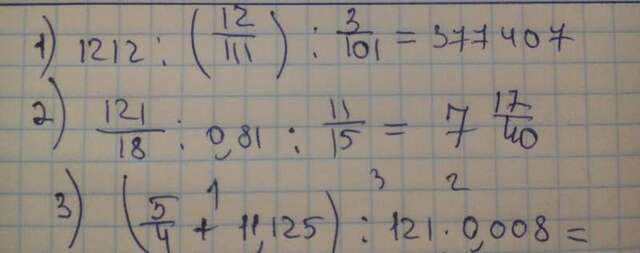 1) 1212 : (12/111) : 3/101 = 377407
2) 121/18 : 0,81 : 11/15 = 7 17/40
1 3 2
3) (5/4 + 11,125) : 121 · 0,008 =